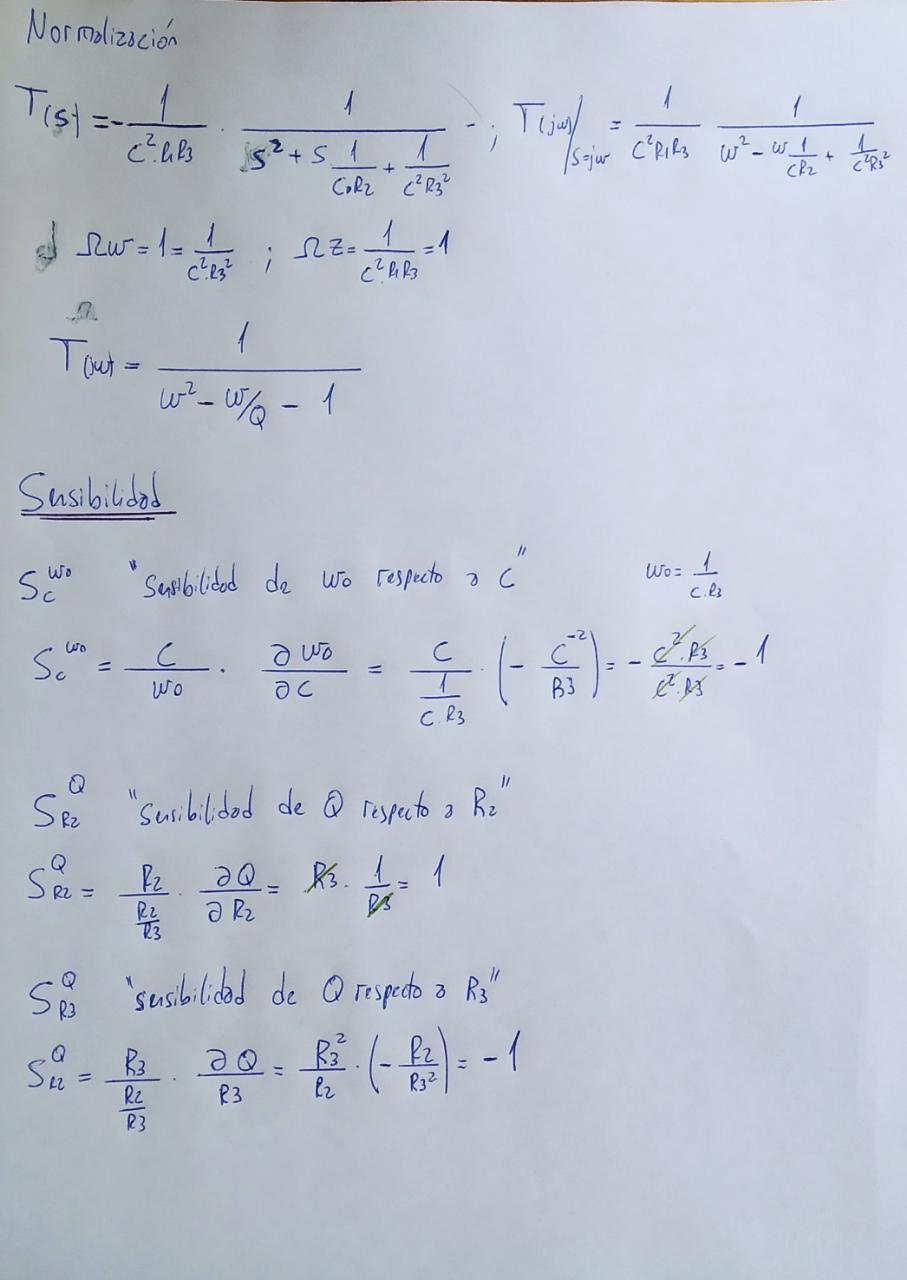 Normalización
T(s) = - 1/(C².R1R3) . 1/(S² + S 1/(C.R2) + 1/(C²R3²)) - ; T(jw)/s=jw = 1/(C²R1R3) 1/(w² - w 1/(CR2) + 1/(C²R3²))
Ωw = 1 = 1/(C².R3²) ; Ωz = 1/(C²R1R3) = 1
T(jw) = 1/(w² - w/Q - 1)
Sensibilidad
S_C^wo "Sensibilidad de wo respecto a C" wo = 1/(C.R3)
S_C^wo = C/wo . ∂wo/∂C = C/(1/(C.R3)) . (- C⁻²/R3) = - (C².R3)/(C².R3) = -1
S_R2^Q "sensibilidad de Q respecto a R2"
S_R2^Q = R2/(R2/R3) . ∂Q/∂R2 = R3 . 1/R3 = 1
S_R3^Q "sensibilidad de Q respecto a R3"
S_R2^Q = R3/(R2/R3) . ∂Q/R3 = R3²/R2 . (- R2/R3²) = -1